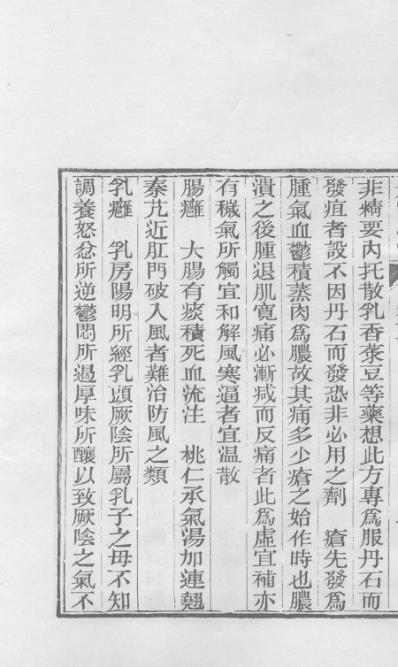 非精要內托散乳香菉豆等藥想此方專爲服丹石而
發疽者設不因丹石而發恐非必用之劑　瘡先發爲
腫氣血鬱積蒸肉爲膿故其痛多少瘡之始作時也膿
潰之後腫退肌寬痛必漸减而反痛者此爲虛宜補亦
有穢氣所觸宜和解風寒逼者宜温散
腸癰　大腸有痰積死血流注　桃仁承氣湯加連翹
秦艽近肛門破入風者難治防風之類
乳癰　乳房陽明所經乳頭厥陰所屬乳子之母不知
調養怒忿所逆鬱悶所遏厚味所釀以致厥陰之氣不